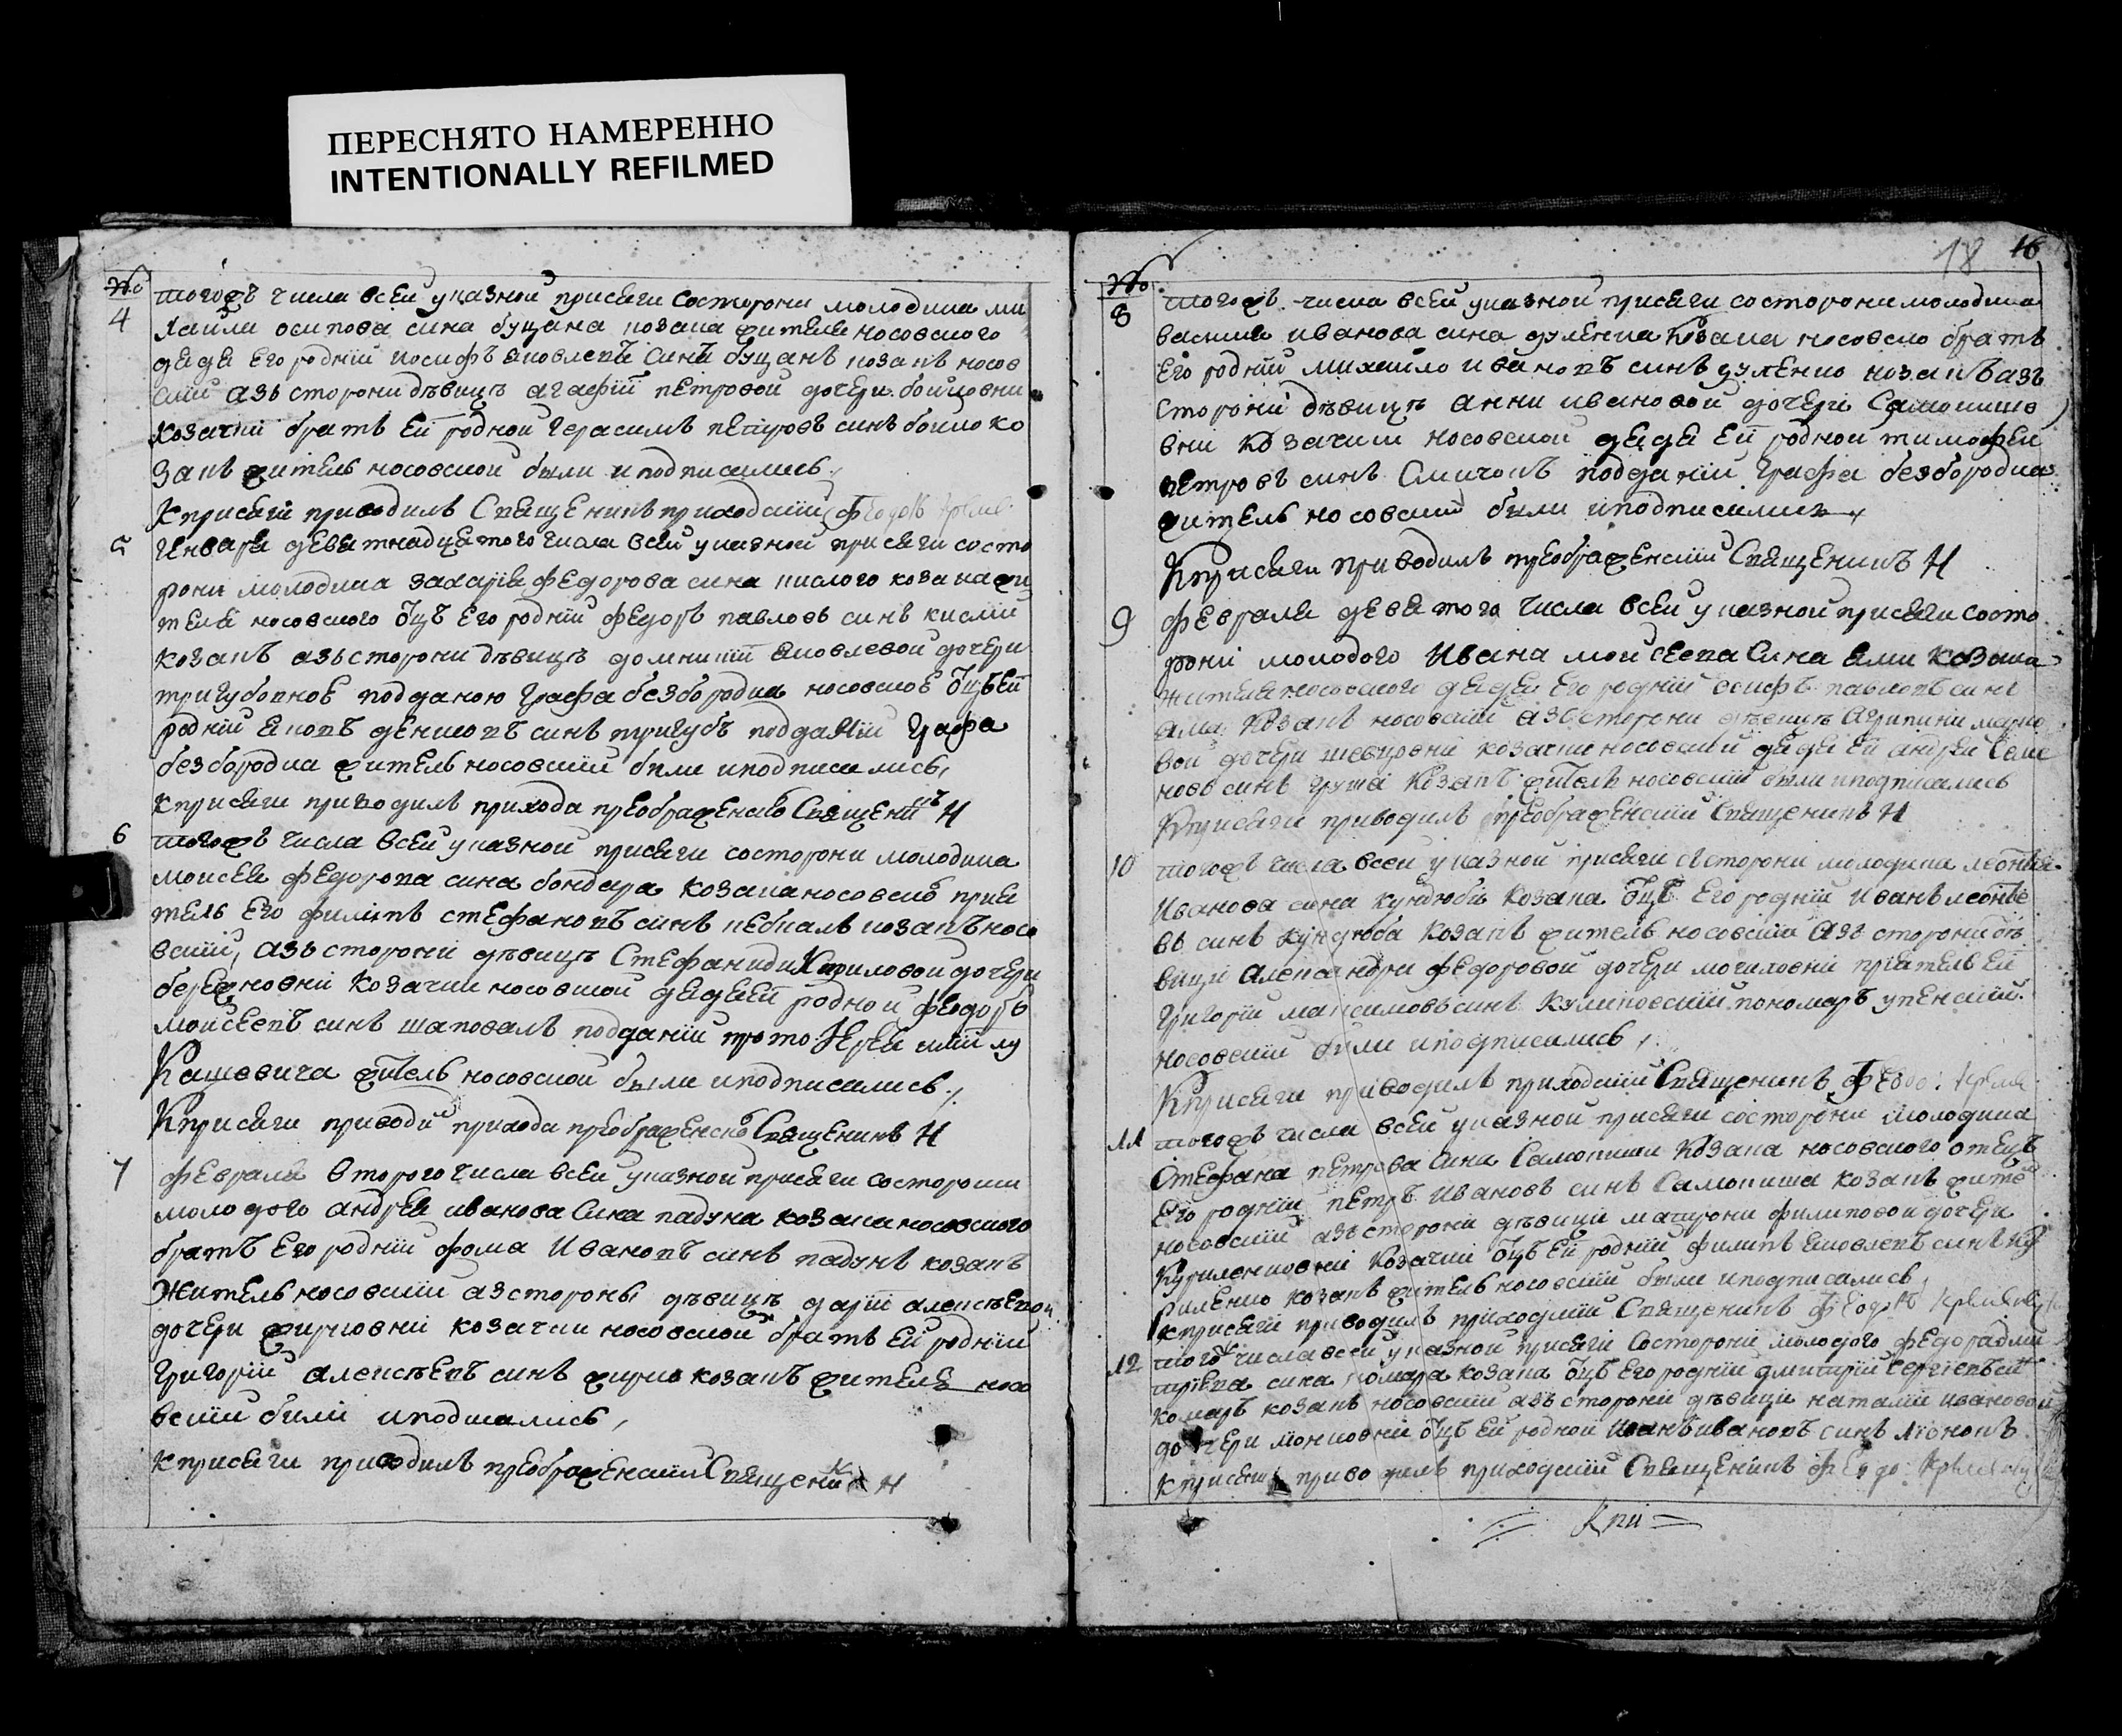 ПЕРЕСНЯТО НАМЕРЕННО
INTENTIONALLY REFILMED
№
4 тогожъ числа всей указной присяги состорони молодика ми
хаила осипова сина буцана козака жителя носовского
дядя его родній иосифъ яковлевъ синъ буцанъ козакъ носов
скій азъ сторони дѣвицъ агафіи петровой дочери бойковни
козачки братъ ей родной герасимъ петровъ синъ бойко ко
закъ житель носовской были и подписались
К присяги приводилъ Священикъ приходскій Феодоръ
5 генваря девятнадцятого числа всей указной присяги состо
рони молодика захарія федорова сина кислого козака жи
теля носовского отцъ его родній федоръ павловъ синъ кислій
козакъ азъ сторони дѣвицъ домникіи яковлевой дочери
тригубовнов подданою графа безбородка носовской отцъ ей
родній яковъ денисовъ синъ тригубъ подданій графа
безбородка житель носовскій били и подписались,
к присяги приводилъ прихода преображенско Священикъ Н
6 тогожъ числа всей указной присяги состорони молодика
моисея федорова сина бондара козака носовско прия
тель его филипъ стефановъ синъ козакъ носо
вскій, азъ сторони дѣвицъ Стефаниди Кириловой дочери
бережновни козачки носовской дядя ей родной федоръ
мойсеевъ синъ шаповалъ подданій прото іерея іліи лу
кашевича житель носовской были и подписались
К присяги приводи прихода преображенско Священикъ Н
7 февраля второго числа всей указной присяги состорони
молодого андрея иванова сина падуна козака носовского
братъ его родній фома Ивановъ синъ падунъ козакъ
Житель носовскій азсторони дѣвицъ даріи алексѣевой
дочери жирковни козачки носовской братъ ей родній
григорій алексѣевъ синъ жирко козакъ жителъ носо
вскій били и подписались,
к присяги приводилъ преображенскій Священикъ Н
18 16
№
8 тогожъ числа всей указной присяги состорони молодика
василия иванова сина дуленка козака носовско братъ
его родній михайло ивановъ синъ дуленко козакъ азъ
сторони дѣвицъ анни ивановой дочери Самокишо
вни козачки носовской дядя ей родной тимофей
петровъ синъ Смичокъ подданій графа безбородка
житель носовскій были и подписались
К присяги приводилъ преображенскій Священикъ Н
9 февраля девятого числа всей указной присяги состо
рони молодого Ивана мойсеева Сина ями козака
жителя носовского дядя его родній осифъ павловъ синъ
яма козакъ носовскій азъ сторони дѣвицъ агрипини марко
вой дочери козачки носовскій дядя ей андрей Семе
новъ синъ груша козакъ житель носовскій были и подписались
К присяги приводилъ преображенскій Священикъ Н
10 тогожъ числа всей указной присяги состорони молодика леонтия
Иванова сина кундюби козака отцъ его родній Иванъ леонтие
въ синъ кундюба козакъ житель носовскій азъ сторони дѣ
вици александри федоровой дочери могиловни приятель ей
григорій максимовъ синъ куликовскій пономаръ успенскій
носовскій були и подписались,
К присяги приводилъ приходскій Священикъ Феодо:
11 тогожъ числа всей указной присяги состорони молодика
Стефана петрова сина Самокиши козака носовского отецъ
его родній петръ Ивановъ синъ Самокиша козакъ жите
носовскій азъ сторони дѣвици матрони филиповой дочери
куриленковни козачки отцъ ей родній филипъ яковлевъ синъ ку
риленко козакъ житель носовскій были и подписались,
к присяги приводилъ приходскій Священикъ феодоръ
12 тогож числа всей указной присяги состорони молодого федора дми
триева сина комара козака отцъ его родній дмитрій сергіевъ си
комаръ козакъ носовскій азъ сторони дѣвици наталіи ивановой
дочери отцъ ей родной Иванъ ивановъ синъ
к присяги приводилъ приходскій Священикъ феодо:
К при